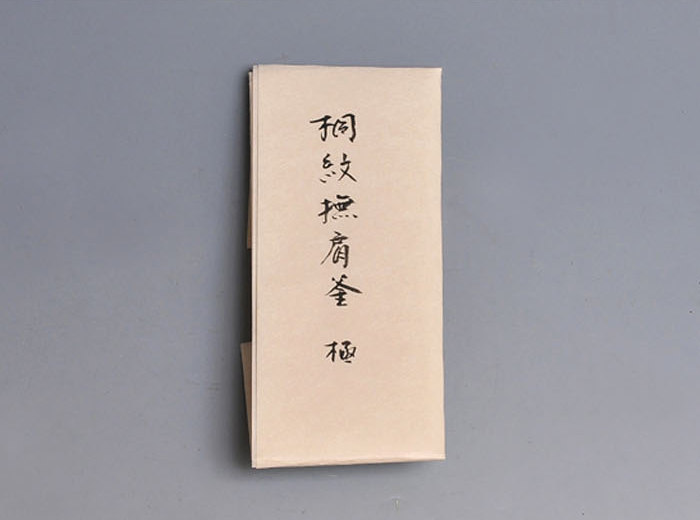 桐紋撫肩釜 極